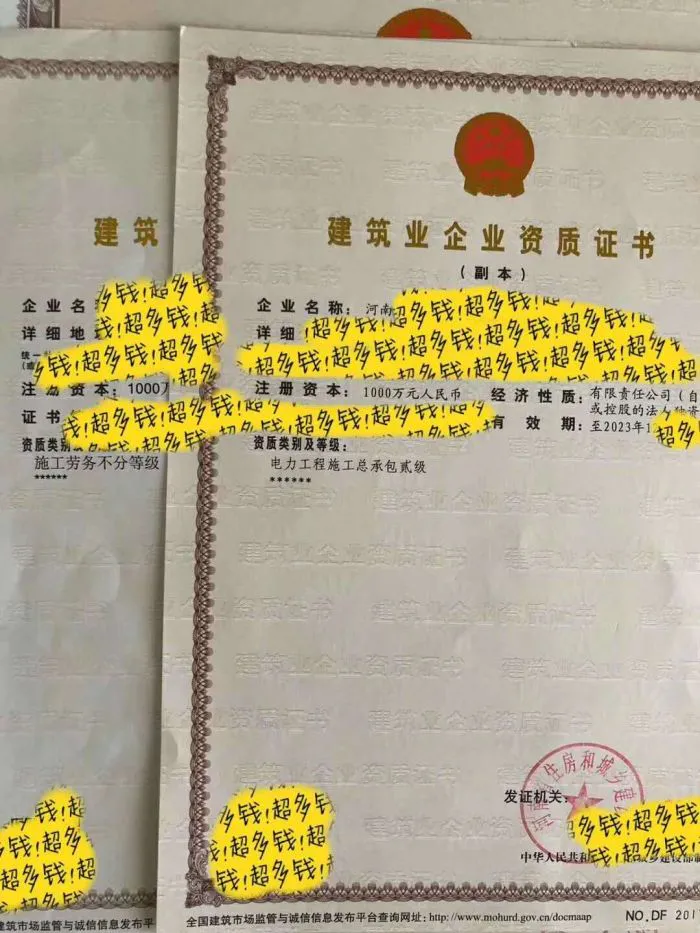 建筑
企业名
详细地
注册资本：1000万
证书
资质类别及等级：
施工劳务不分等级
******
建筑业企业资质证书
（副本）
企业名称：河南
详细
注册资本：1000万元人民币 经济性质：有限责任公司（自
或控股的法人独资
有效期：至2023年1
资质类别及等级：
电力工程施工总承包贰级
******
住房和城乡建
发证机关：
中华人民共和
乡建设部制
全国建筑市场监管与诚信信息发布平台
全国建筑市场监管与诚信信息发布平台查询网址：http://www.mohurd.gov.cn/docmaap
NO.DF 201
超多钱!超多钱!超多钱!